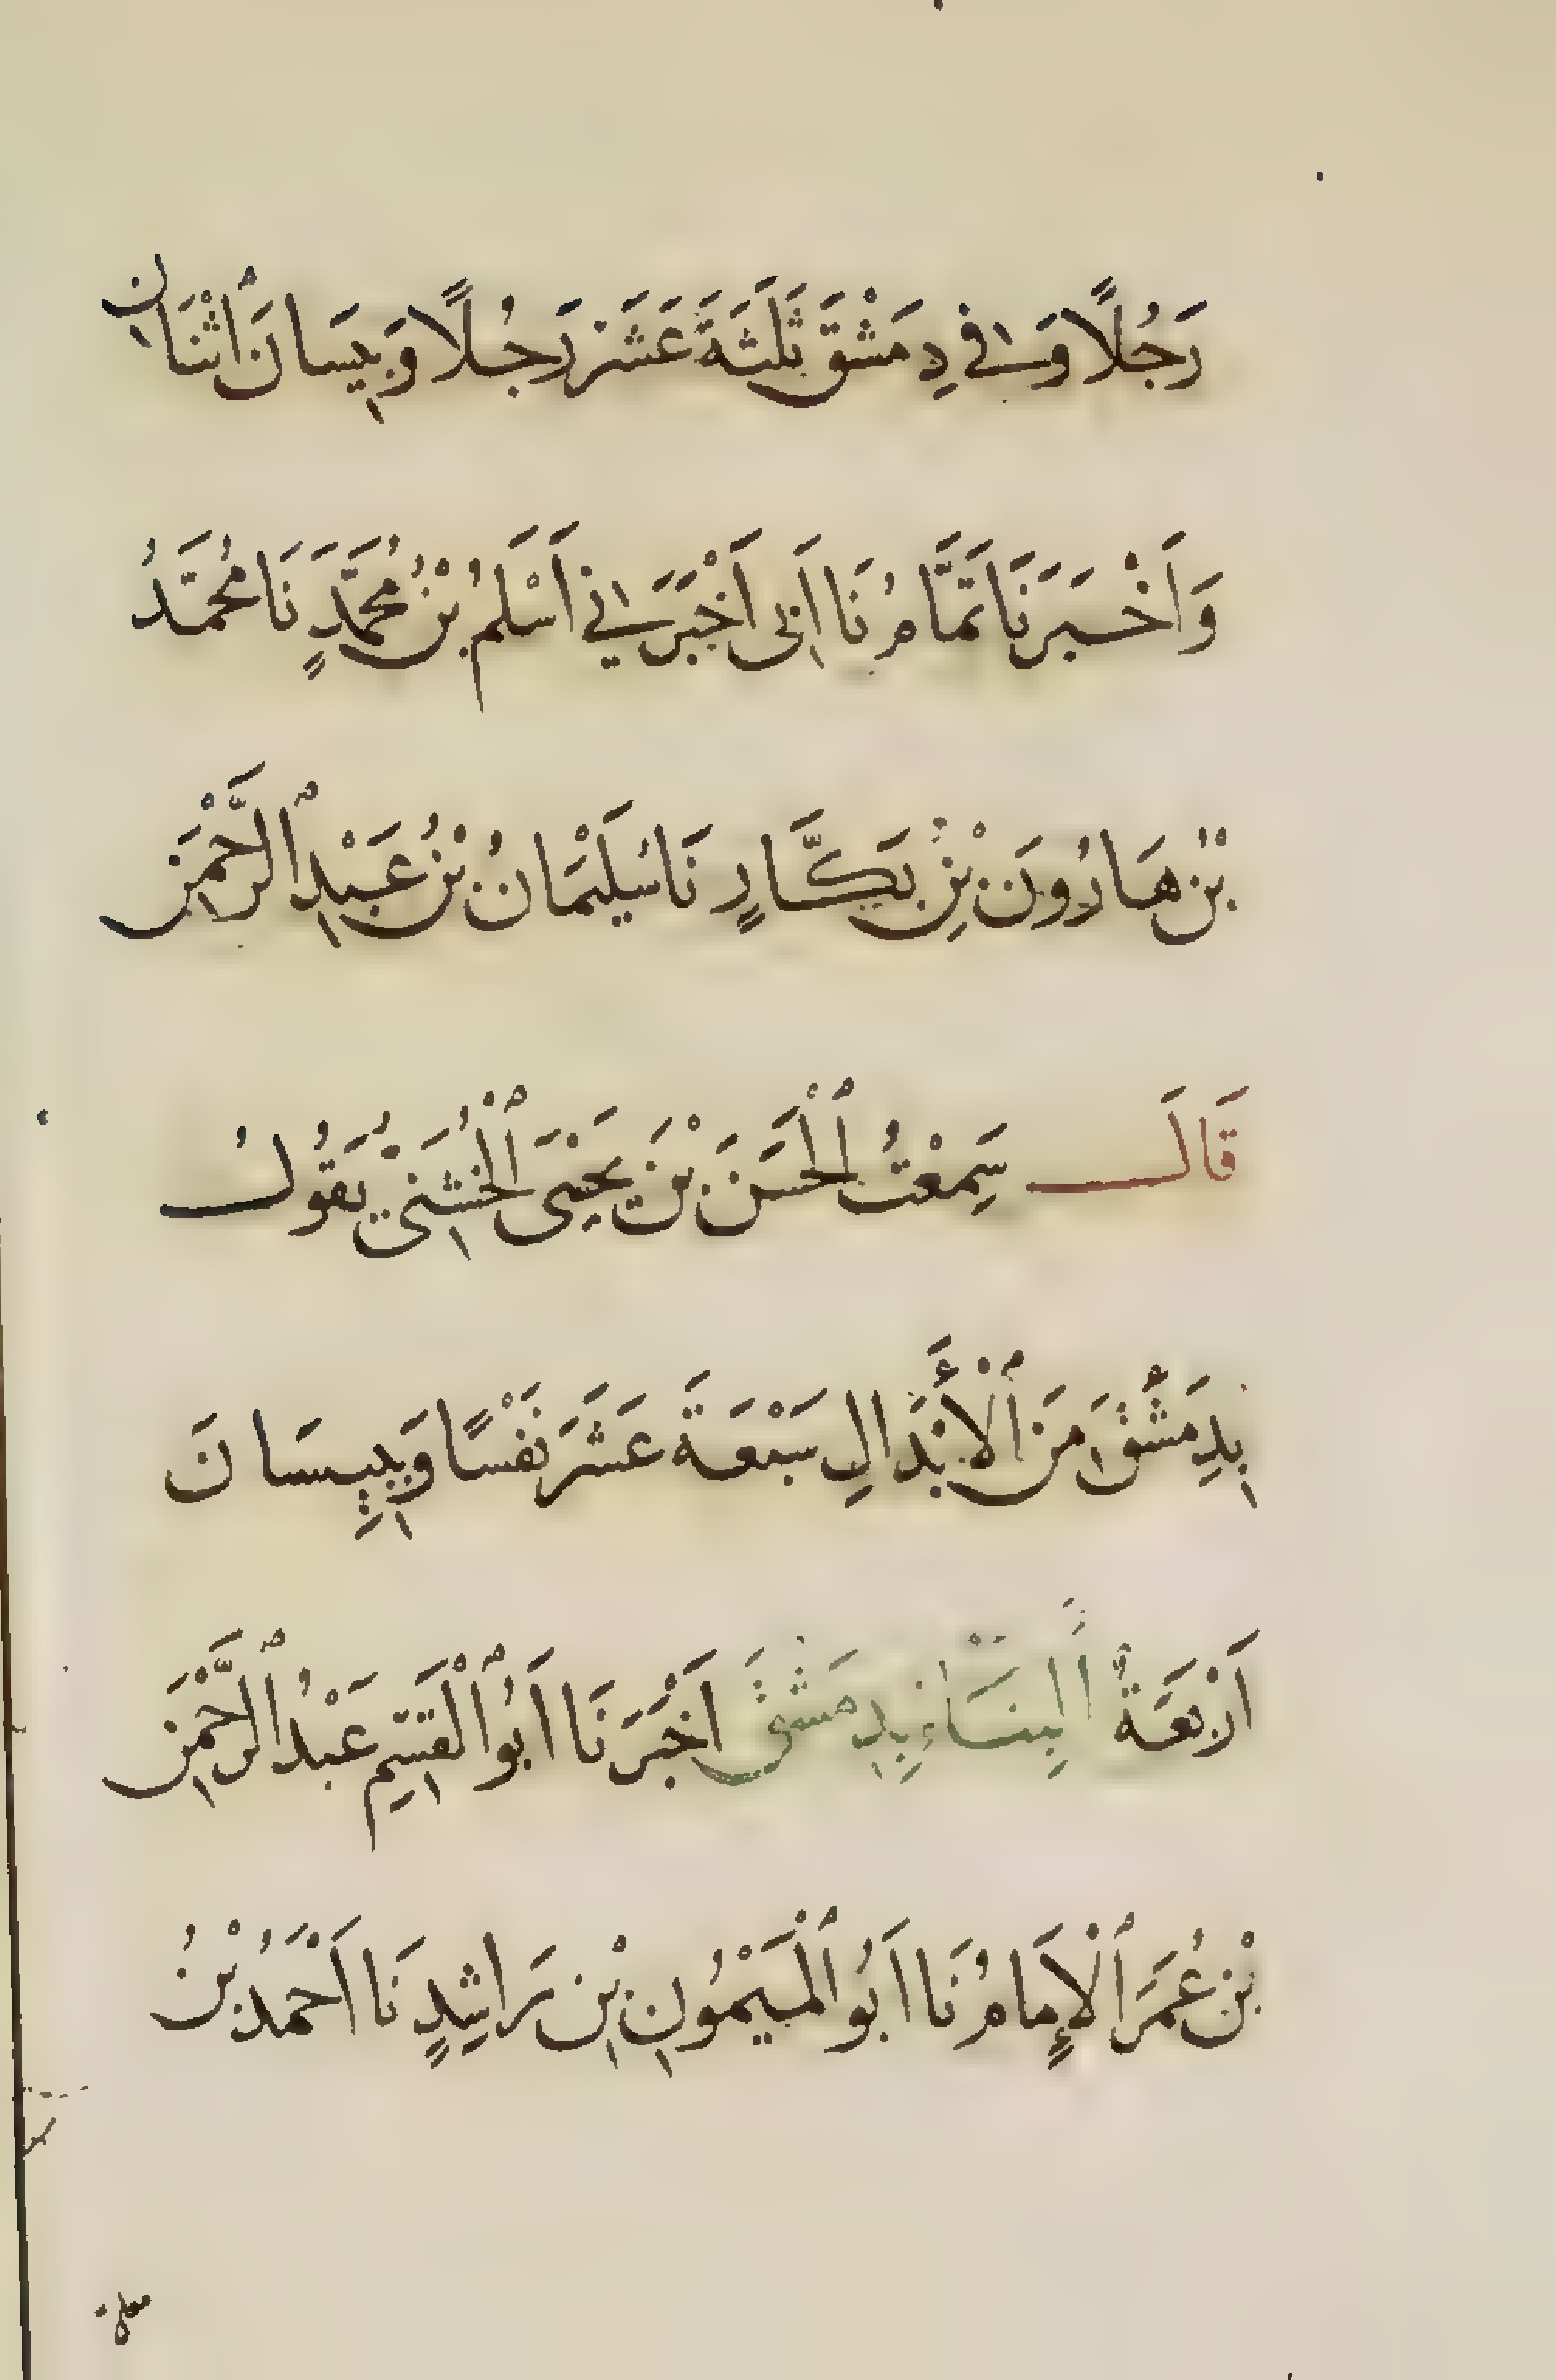 رَجُلًا وَفي دِمَشْقَ ثَلَثَةَ عَشَرَ رَجُلًا وَبِيَسَانَ ٱثْنَانِ
وَأَخْبَرَنَا تَمَّامُ نَا أَبِى أَخْبَرَنِي أَسْلَمُ بْنُ مُحَمَّدٍ نَا مُحَمَّدُ
بْنُ هَارُونَ بْنِ بَكَّارٍ نَا سُلَيْمَانُ بْنُ عَبْدِ ٱلرَّحْمَنِ
قَالَ سَمِعْتُ ٱلْحَسَنَ بْنَ يَحْيَى ٱلْخُشَنِيَّ يَقُولُ
بِدِمَشْقَ مِنَ ٱلْأَبْدَالِ سَبْعَةَ عَشَرَ نَفْسًا وَبِبِيسَانَ
أَرْبَعَةٌ بِدِمَشْقَ أَخْبَرَنَا أَبُو ٱلْقَسِمِ عَبْدُ ٱلرَّحْمَنِ
بْنُ عُمَرَ ٱلْإِمَامُ نَا أَبُو ٱلْمَيْمُونِ بْنِ رَاشِدٍ نَا أَحْمَدُ بْنُ